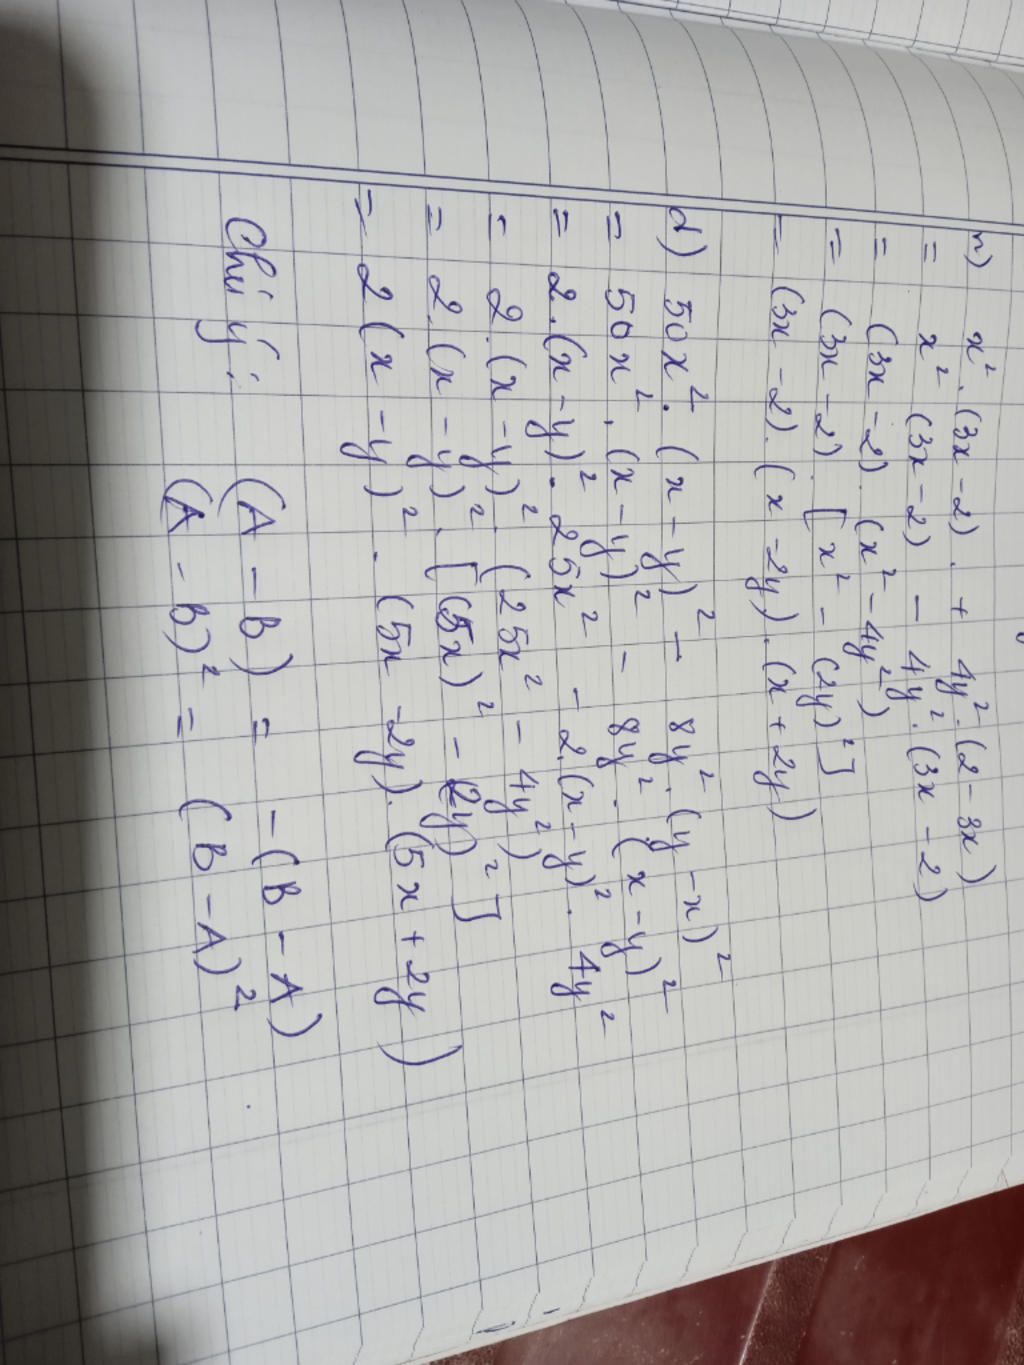 n) x². (3x - 2). + 4y². (2 - 3x)
= x² (3x - 2) - 4y². (3x - 2)
= (3x - 2). (x² - 4y²)
= (3x - 2). [x² - (2y)²]
= (3x - 2). (x - 2y). (x + 2y)
d) 50x². (x - y)² - 8y². (y - x)²
= 50x². (x - y)² - 8y². (x - y)²
= 2.(x - y)². 25x² - 2.(x - y)². 4y²
= 2.(x - y)². (25x² - 4y²)
= 2.(x - y)². [(5x)² - (2y)²]
= 2(x - y)². (5x - 2y). (5x + 2y)
Chú ý: (A - B) = -(B - A)
(A - B)² = (B - A)²